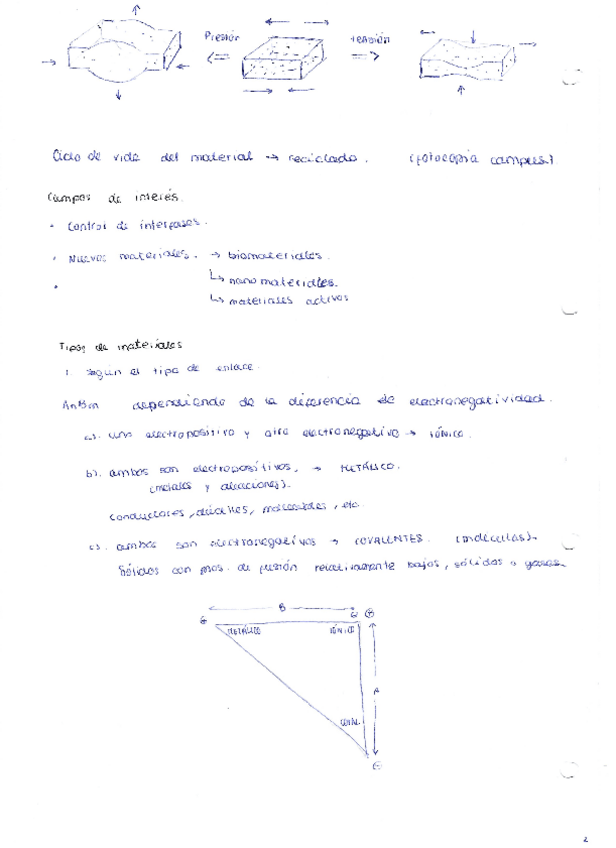 Presión tensión
Ciclo de vida del material → reciclado. (fotocopia campus)
Campos de interés.
· Control de interfases.
· Nuevos materiales. → biomateriales.
↳ nanomateriales.
↳ materiales activos
·
Tipos de materiales
1. Según el tipo de enlace.
AnBm dependiendo de la diferencia de electronegatividad.
a). uno electropositivo y otro electronegativo → iónico.
b). ambos son electropositivos, → METÁLICO.
(metales y aleaciones).
conductores, dúctiles, maleables, etc.
c). ambos son electronegativos → COVALENTES. (moléculas).
Sólidos con ptos. de fusión relativamente bajos, sólidos o gases.
B
METÁLICO IÓNICO
A
COVAL
2